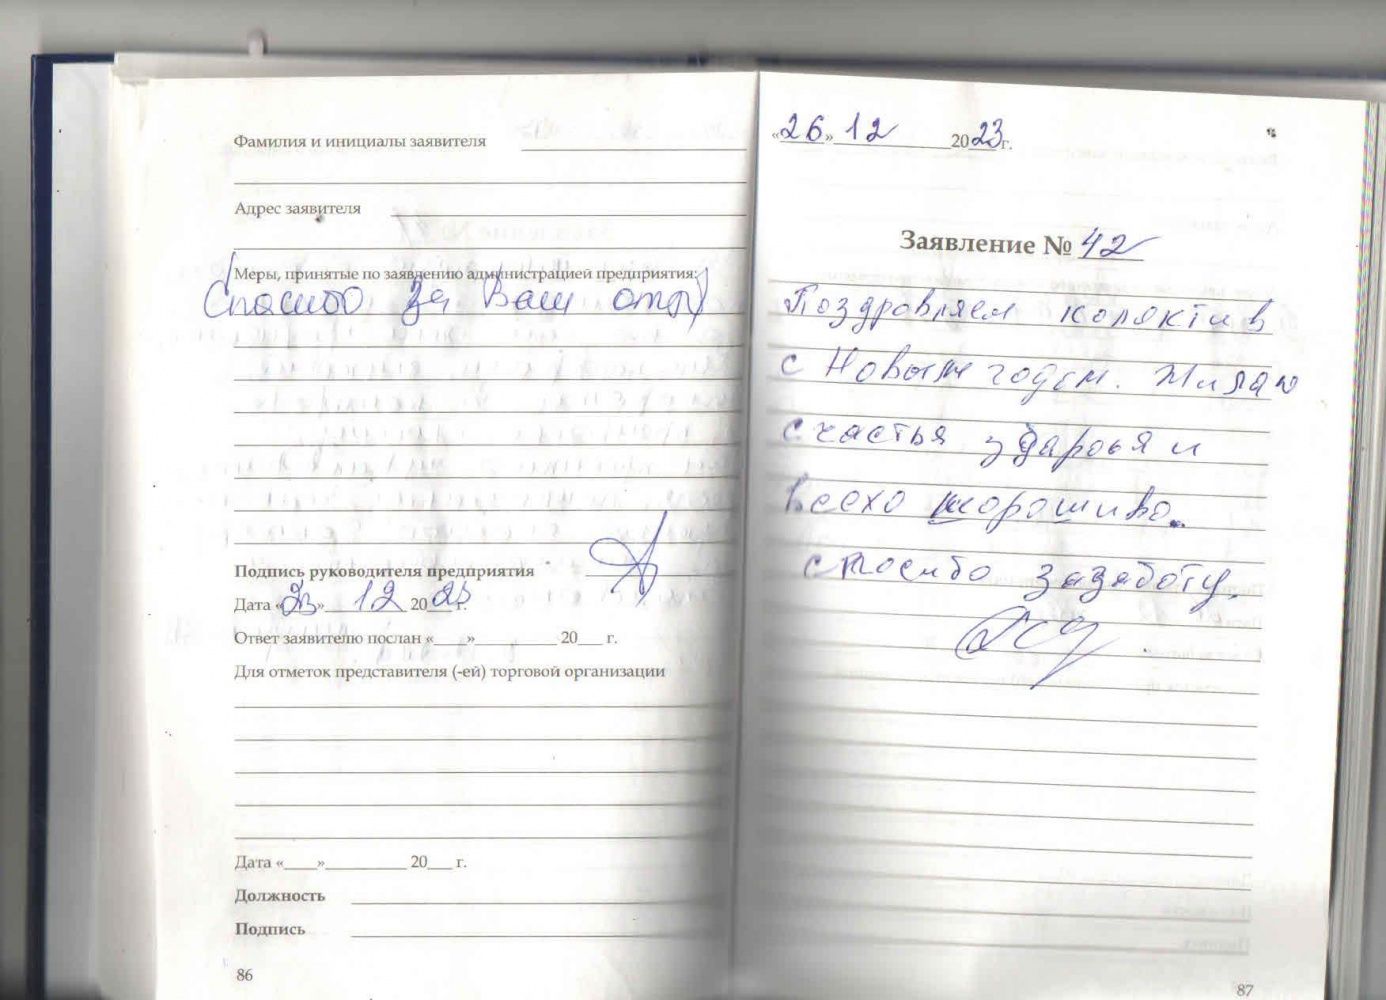 Фамилия и инициалы заявителя
Адрес заявителя
Меры, принятые по заявлению администрацией предприятия:
Спасибо за Ваш отзыв
Подпись руководителя предприятия
Дата «23» 12 2023 г.
Ответ заявителю послан «____» __________ 20___ г.
Для отметок представителя (-ей) торговой организации
Дата «____» __________ 20___ г.
Должность
Подпись
86
«26» 12 2023 г.
Заявление № 42
Поздровляем коляктив
с Новым годом.
счастья здаровья и
всехо хорошиво.
спосибо зазаботу.
87